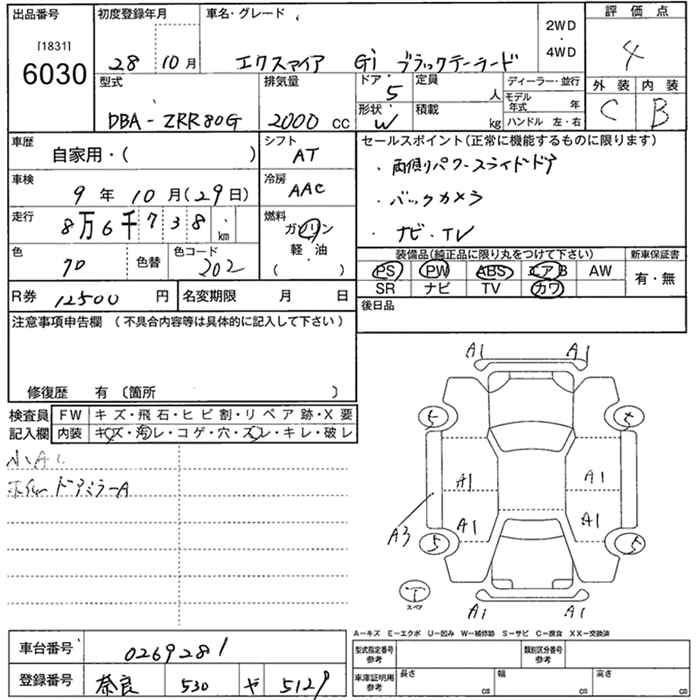 出品番号
[1831]
6030
初度登録年月
28年10月
車名・グレード
エクスァイア Gi ブラックテーラード
2WD・4WD
評価点
4
外装 内装
C B
型式
DBA-ZRR80G
排気量
2000 cc
ドア・形状
5
W
定員 人
積載 kg
ディーラー・並行
モデル年式 年
ハンドル 左・右
車歴
自家用・( )
シフト
AT
車検
9年10月(29日)
冷房
AAC
走行
8万6千738 km
燃料
ガソリン
軽油
( )
色
70
色替
色コード
202
R券 12500円
名変期限 月 日
セールスポイント(正常に機能するものに限ります)
・両側パワースライドドア
・バックカメラ
・ナビ・TV
装備品(純正品に限り丸をつけて下さい)
PS PW ABS エアB AW
SR ナビ TV カワ
新車保証書
有・無
後日品
注意事項申告欄(不具合内容等は具体的に記入して下さい)
修復歴 有 〔箇所 〕
検査員記入欄
FW キズ・飛石・ヒビ割・リペア跡・X要
内装 キズ・汚レ・コゲ・穴・スレ・キレ・破レ
小A
ドアミラーA
A1 A1
5 5
A1 A1
A1 A1
A3
5 5
T
スペア
A1 A1
A−キズ E−エクボ U−凹み W−補修跡 S−サビ C−腐食 XX−交換済
車台番号 0269281
登録番号 奈良 530 や 5129
型式指定番号 参考
類別区分番号 参考
車庫証明用 参考
長さ cm 幅 cm 高さ cm